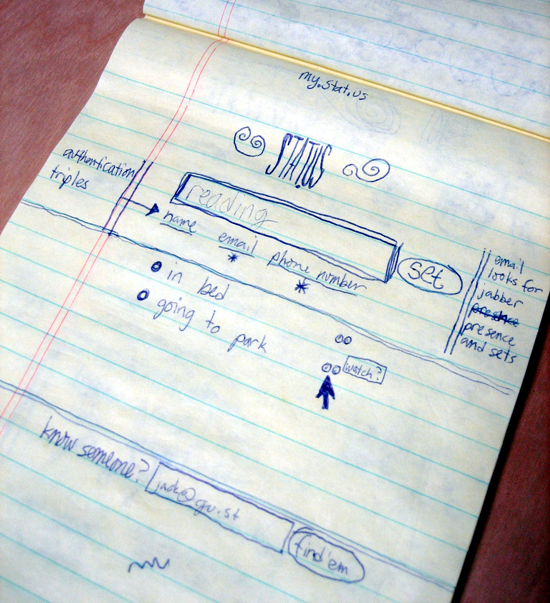 my.stat.us
STAT.US
authentication
triples
reading
name email phone number
set
* *
email
looks for
jabber
presence
presence
and sets
in bed
going to park
watch?
know someone?
jack@gu.st
find 'em